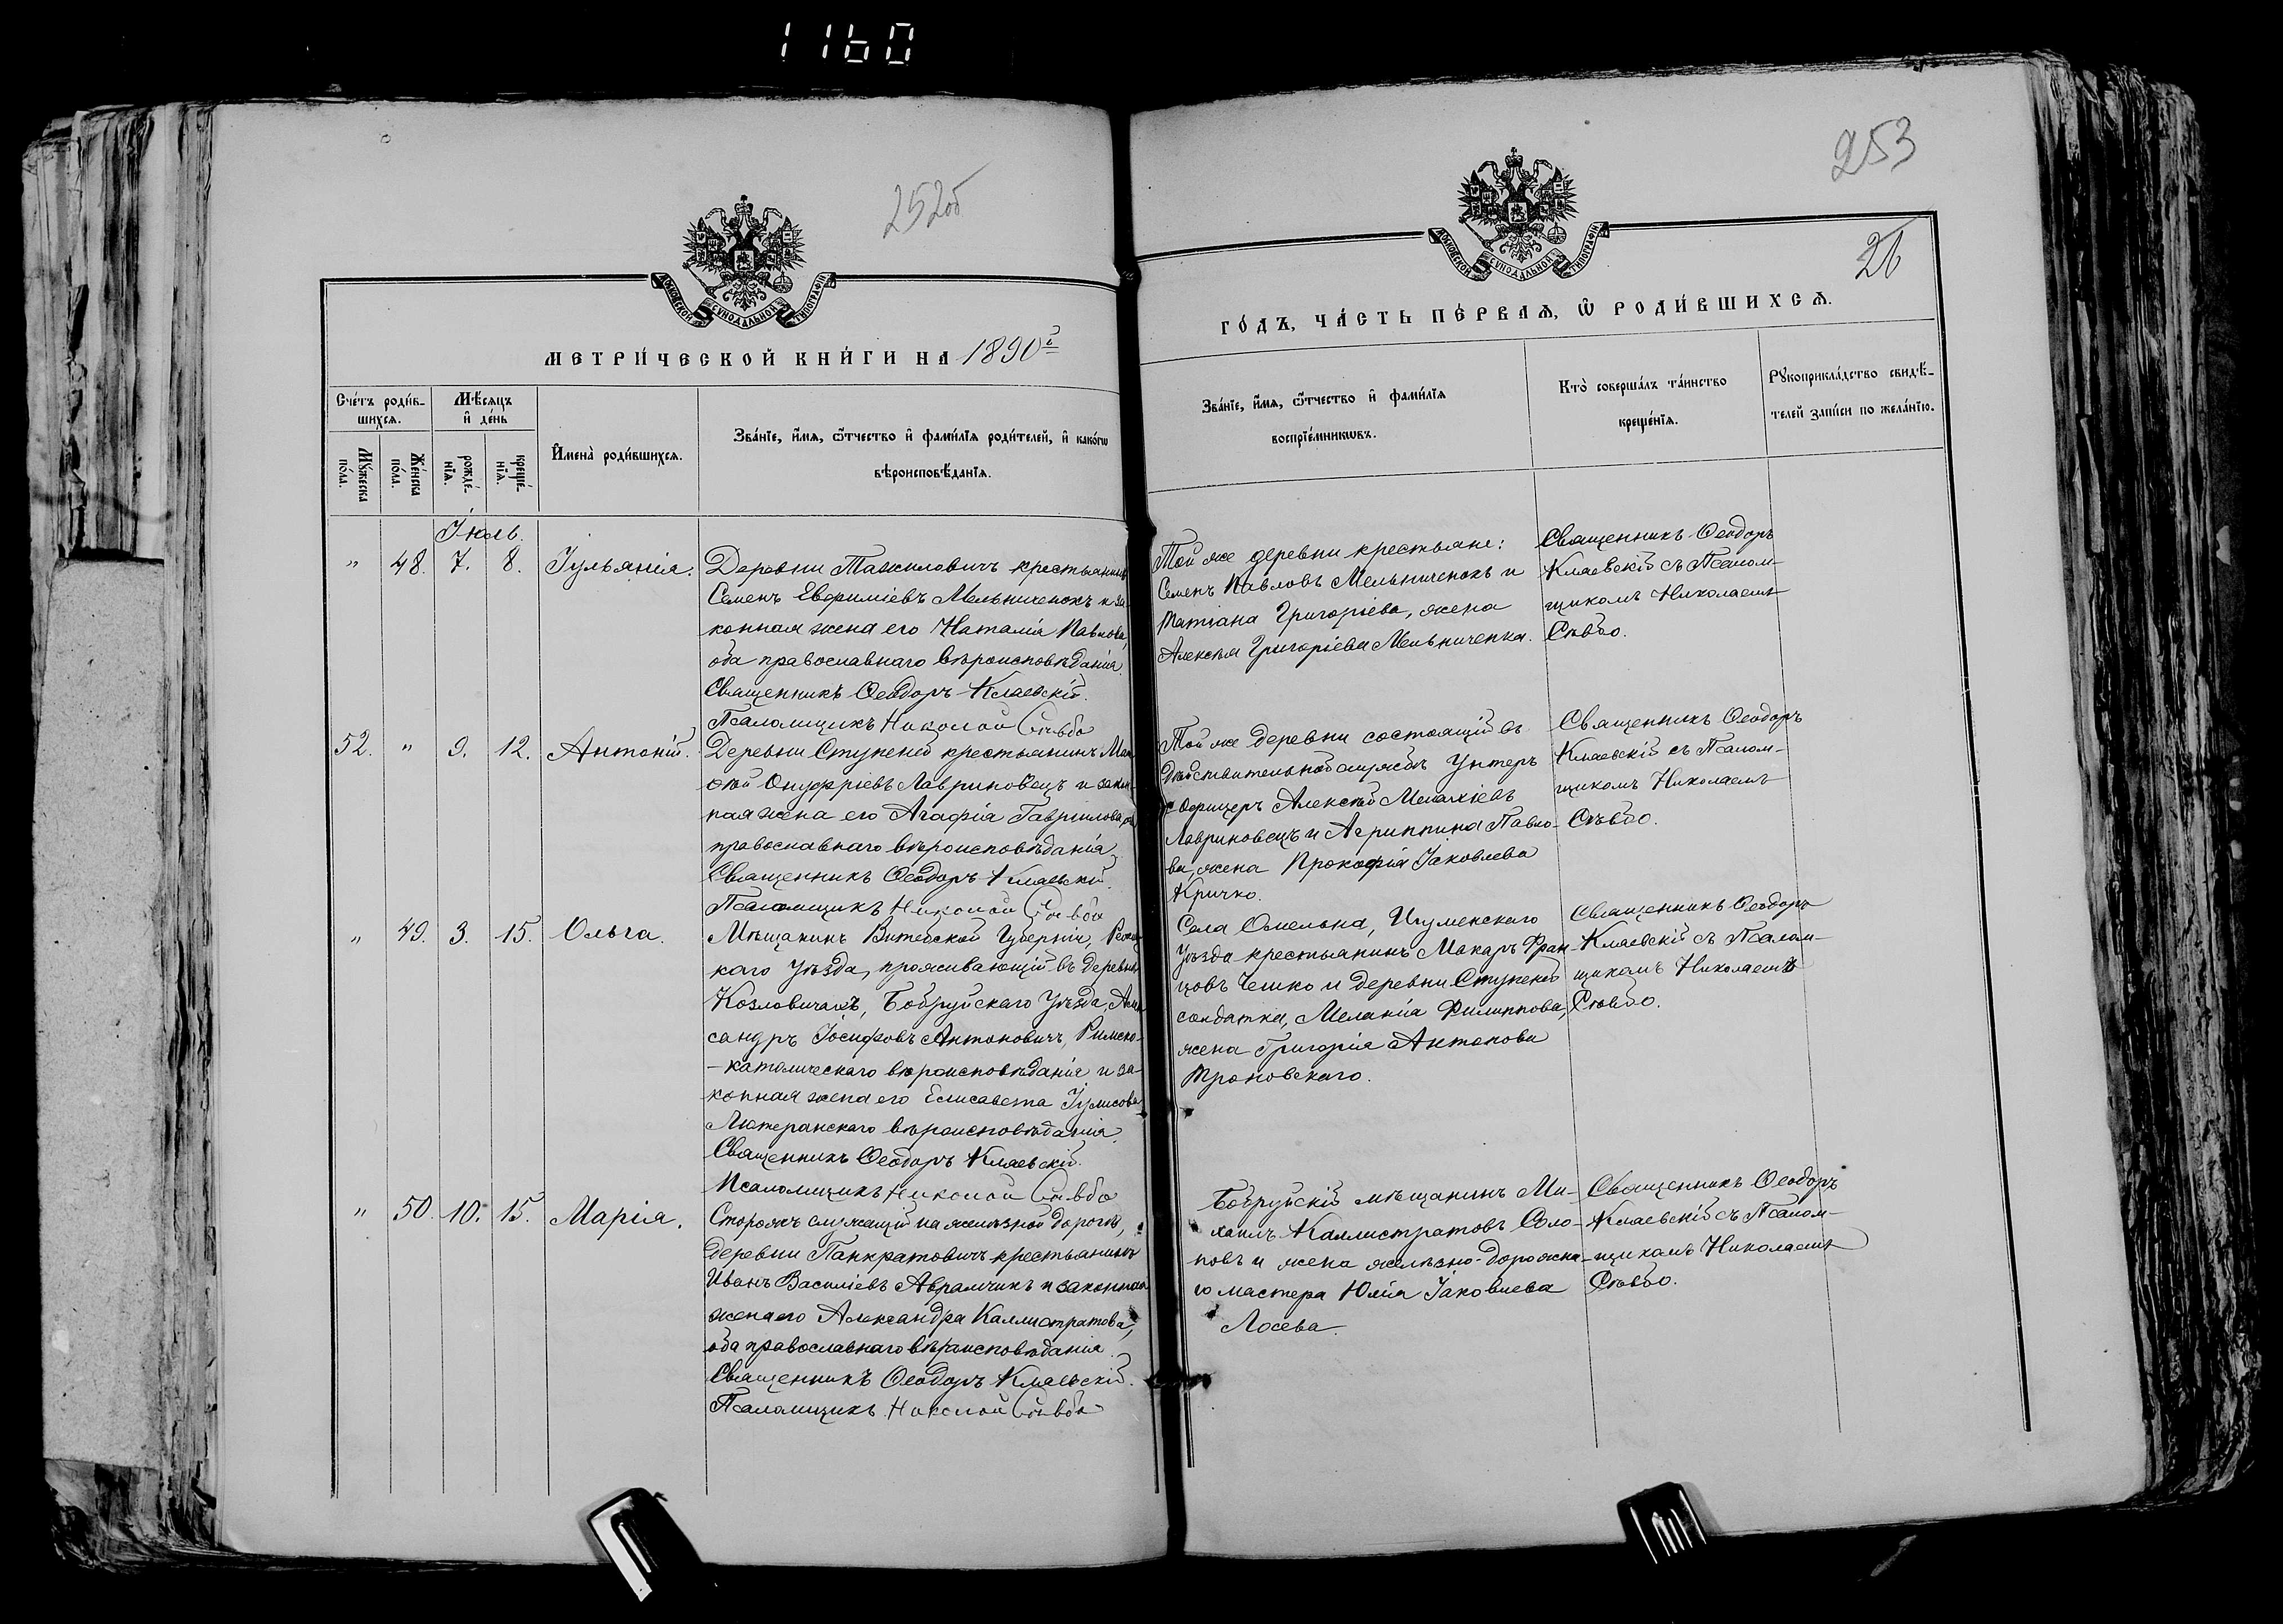 1160
252об
МОСКОВСКОЙ СѴНОДАЛЬНОЙ ТИПОГРАФІИ
МЕТРИ́ЧЕСКОЙ КНИ́ГИ НА 1890й
Сче́тъ роди́в-
шихсѧ.
Мѣ́сѧцъ
и҆ де́нь
И҆мена̀ роди́вшихсѧ.
Зва́нїе, и҆́мѧ, ѻ҆́тчество и҆ фами́лїѧ роди́телей, и҆ како́гѡ
вѣроисповѣ́данїѧ.
Мꙋ́жеска
по́ла.
Же́нска
по́ла.
рожде́-
нїѧ.
креще́-
нїѧ.
Іюль.
" 48. 7. 8. Іульянія.
Деревни Тажиловичъ крестьянинъ
Семенъ Евфиміевъ Мельниченокъ и за-
конная жена его Наталія Павлова,
оба православнаго вѣроисповѣданія.
Священникъ Ѳеодоръ Клаевскій.
Псаломщикъ Николай Сѣвбо
52. " 9. 12. Антоній.
Деревни Ступеней крестьянинъ Мат-
ѳей Онуфріевъ Лавриновецъ и закон-
ная жена его Агафія Гавріилова,
православнаго вѣроисповѣданія.
Священникъ Ѳеодоръ Клаевскій.
Псаломщикъ Николай Сѣвбо
" 49. 3. 15. Ольга.
Мѣщанинъ Витебской Губерніи,
каго Уѣзда, проживающій въ деревнѣ
Козловичахъ, Бобруйскаго Уѣзда, Алек-
сандръ Іосифовъ Антоновичъ, Римско-
-католическаго вѣроисповѣданія и за-
конная жена его Елисавета Іулисова
Лютеранскаго вѣроисповѣданія.
Священникъ Ѳеодоръ Клаевскій.
Псаломщикъ Николай Сѣвбо
" 50. 10. 15. Марія.
Сторожъ служащій на желѣзной дорогѣ,
деревни Панкратовичъ крестьянинъ
Иванъ Василіевъ Аврамчикъ и законная
жена его Александра Каллистратова,
оба православнаго вѣроисповѣданія.
Священникъ Ѳеодоръ Клаевскій.
Псаломщикъ Николай Сѣвбо
253
26
МОСКОВСКОЙ СѴНОДАЛЬНОЙ ТИПОГРАФІИ
ГО́ДЪ, ЧА́СТЬ ПЕ́РВАѦ, Ѡ҆ РОДИ́ВШИХСѦ.
Зва́нїе, и҆́мѧ, ѻ҆́тчество и҆ фами́лїѧ
воспрїе́мникѡвъ.
Кто̀ соверша́лъ та́инство
креще́нїѧ.
Рꙋкоприкла́дство свидѣ́-
телей за́писи по жела́нїю.
Той же деревни крестьяне:
Семенъ Павловъ Мельниченокъ и
Татіана Григоріева, жена
Алексѣя Григоріева Мельниченка.
Священникъ Ѳеодоръ
Клаевскій съ Псалом-
щикомъ Николаемъ
Сѣвбо.
Той же деревни состоящій въ
дѣйствительной службѣ Унтеръ
офицеръ Алексѣй Мелахіевъ
Лавриновецъ и Агриппина Павло-
ва, жена Прокофія Іаковлева
Кричко.
Священникъ Ѳеодоръ
Клаевскій съ Псалом-
щикомъ Николаемъ
Сѣвбо.
Села Омельна, Игуменскаго
Уѣзда крестьянинъ Макаръ Фран-
цовъ Чешко и деревни Ступеней
солдатка, Меланія Филиппова,
жена Григорія Антонова
Трановскаго.
Священникъ Ѳеодоръ
Клаевскій съ Псалом-
щикомъ Николаемъ
Сѣвбо.
Бобруйскій мѣщанинъ Ми-
хаилъ Каллистратовъ Соло-
новъ и жена желѣзно-дорожна-
го мастера Юлія Іаковлева
Лосева.
Священникъ Ѳеодоръ
Клаевскій съ Псалом-
щикомъ Николаемъ
Сѣвбо.